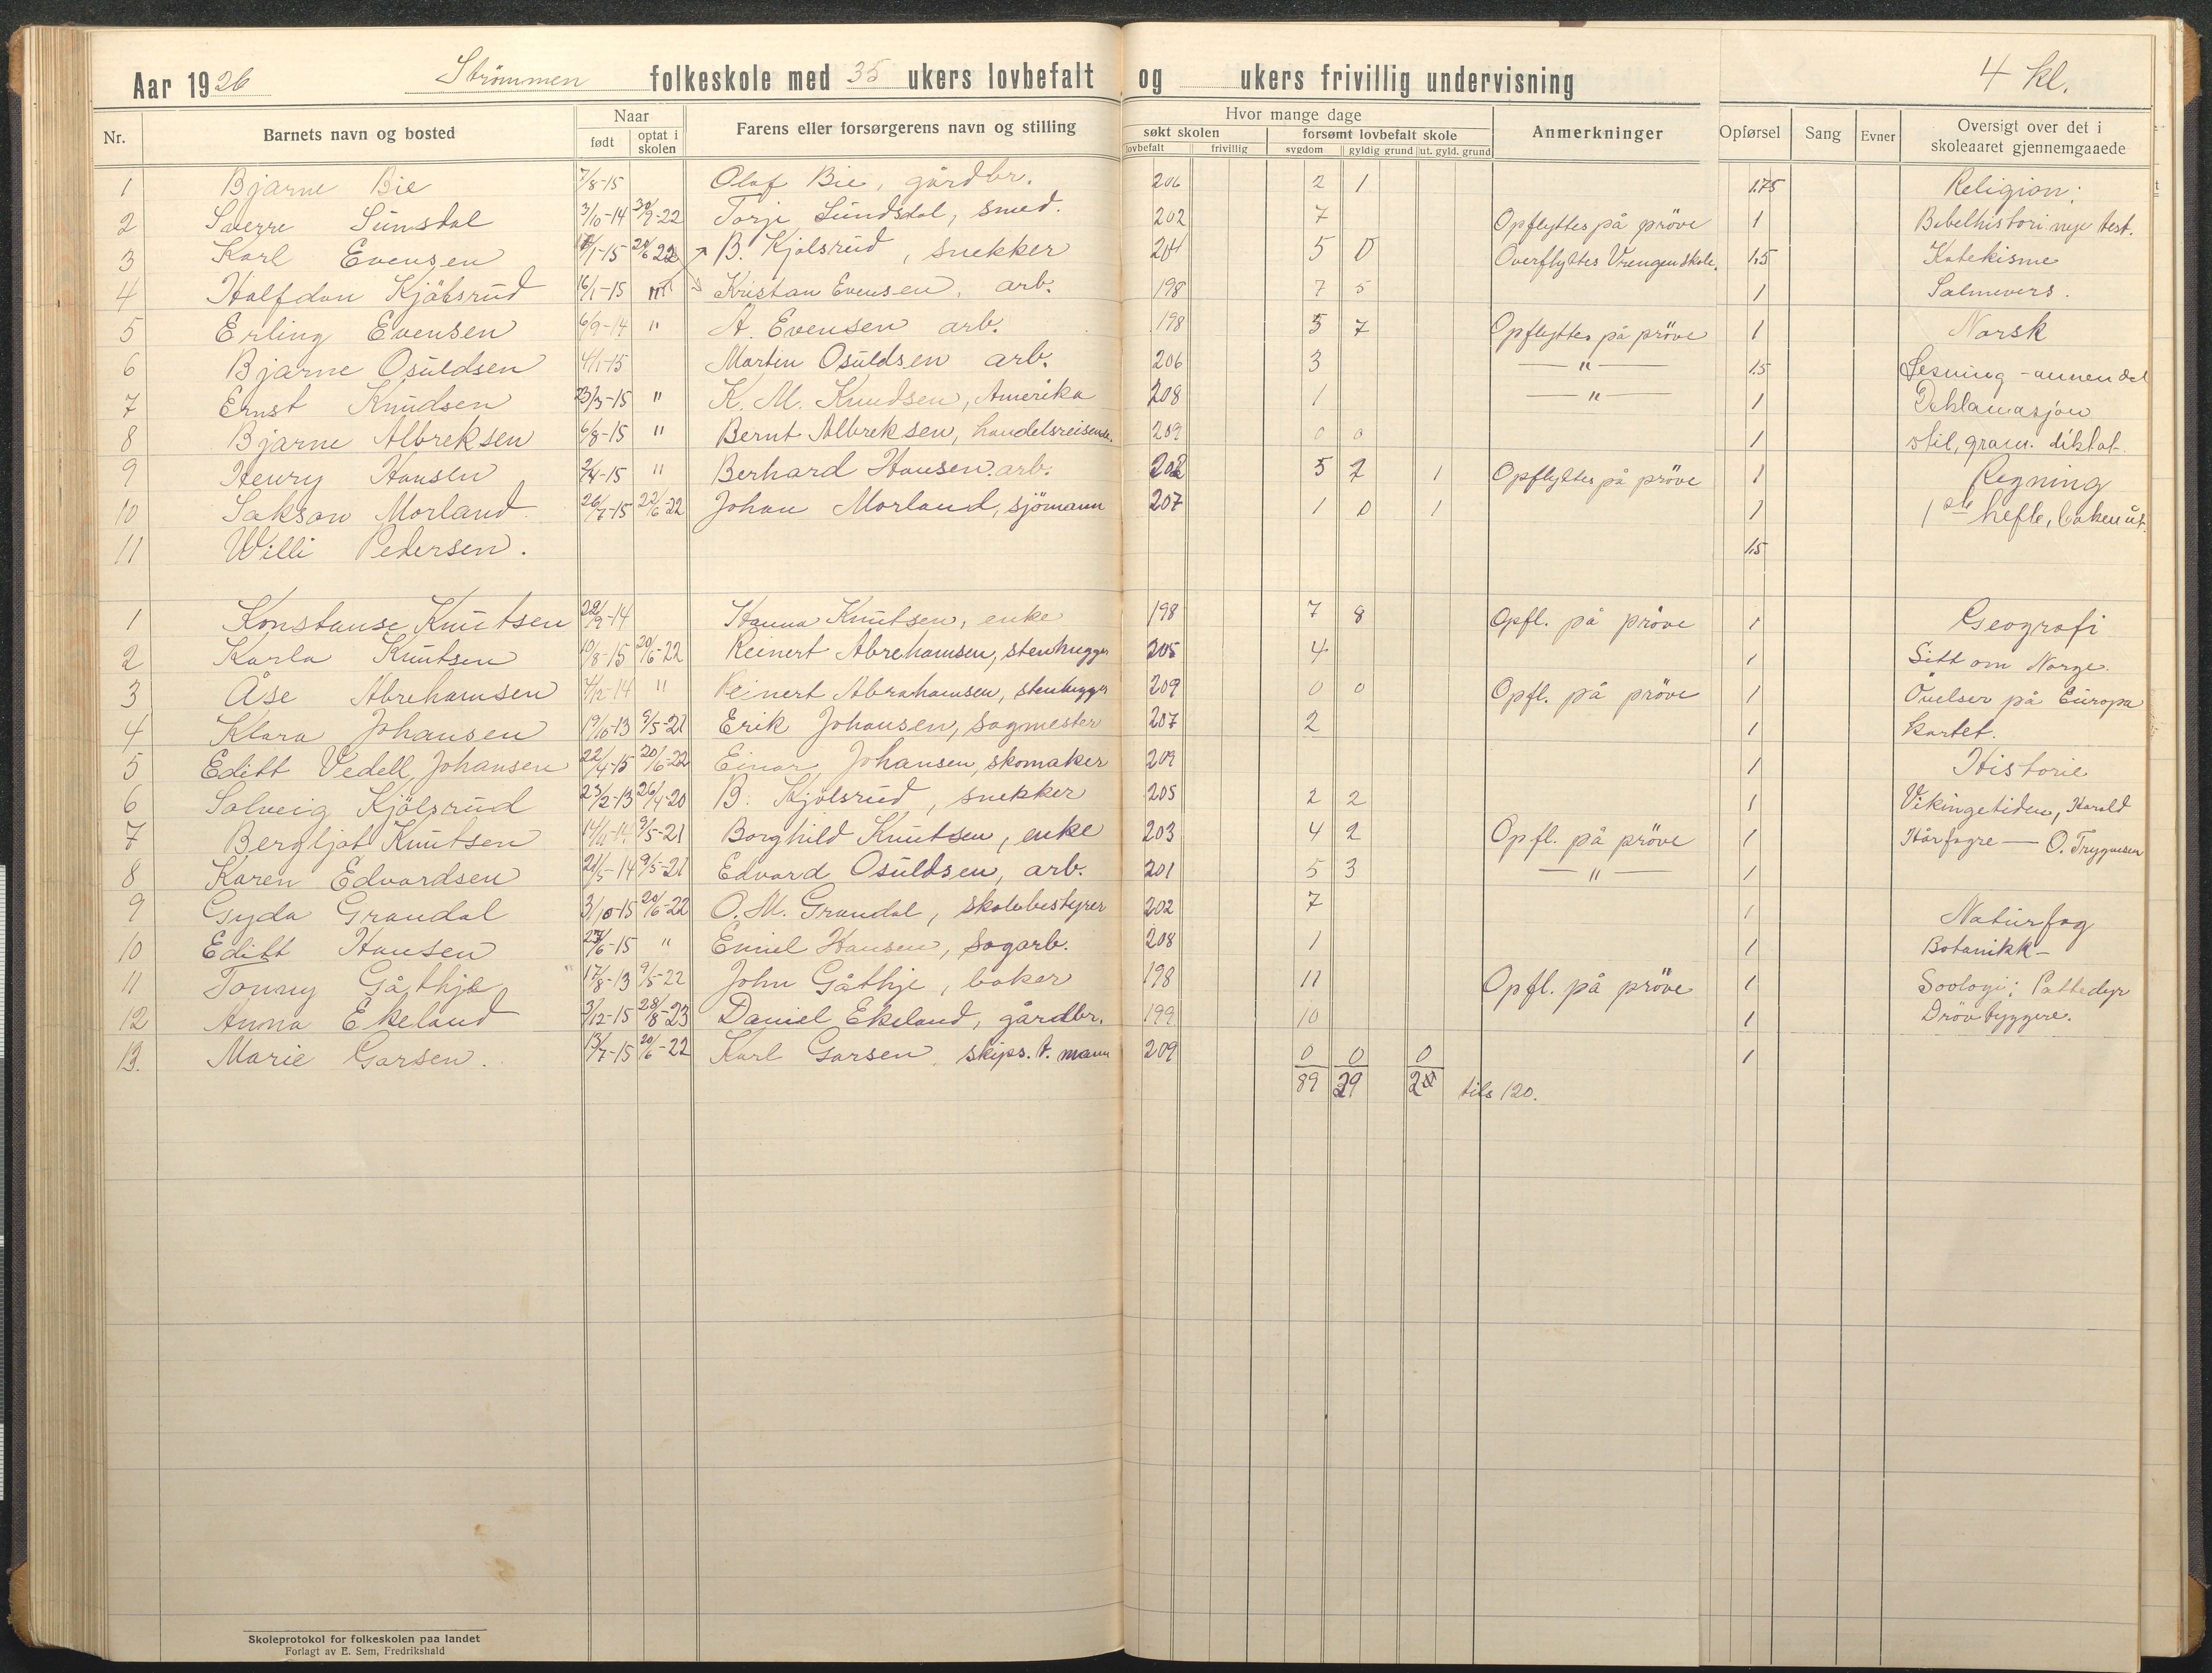 Aar 1926 Strømmen folkeskole med 35 ukers lovbefalt og ukers frivillig undervisning 4 kl.
Nr. Barnets navn og bosted Naar født optat i skolen Farens eller forsørgerens navn og stilling Hvor mange dage søkt skolen lovbefalt frivillig forsømt lovbefalt skole sygdom gyldig grund ut. gyld. grund Anmerkninger Opførsel Sang Evner Oversigt over det i skoleaaret gjennemgaaede
1 Bjarne Bie 7/8-15 Olaf Bie, gårdbr. 206 2 1 1.75 Religion:
2 Sverre Sunsdal 3/10-14 30/9-22 Torje Sundsdal, smed. 202 7 Opflyttes på pröve 1 Bibelhistori nye test.
3 Karl Evensen 1/1-15 20/6 22 B. Kjølsrud, snekker 204 5 0 Overflyttes Vrengen skole. 1.5 Katekisme
4 Halfdan Kjölsrud 16/1-15 " Kristan Evensen, arb. 198 7 5 1 Salmevers.
5 Erling Evensen 6/9-14 " A. Evensen arb. 198 5 7 Opflyttes på pröve 1 Norsk
6 Bjarne Osuldsen 4/1-15 Martin Osuldsen arb. 206 3 — " — 1.5 Lesning - annen del
7 Ernst Knudsen 23/3-15 " K. M. Knudsen, Amerika 208 1 — " — 1 Deklamasjon
8 Bjarne Albreksen 6/8-15 " Bernt Albreksen, handelsreisende. 209 0 0 1 stil, gram. diktat.
9 Henry Hansen 2/4-15 " Berhard Hansen. arb. 202 5 2 1 Opflyttes på pröve 1 Regning
10 Sakson Morland 26/7-15 22/6-22 Johan Morland, sjömann 207 1 0 1 1 1ste hefte, boken ut.
11 Willi Pedersen. 1.5
1 Konstanse Knutsen 28/9-14 Hanna Knutsen, enke 198 7 8 Opfl. på pröve 1 Geografi
2 Karla Knutsen 10/8-15 20/6-22 Reinert Abrehamsen, stenhugger 205 4 1 Litt om Norge.
3 Åse Abrehamsen 4/2-14 " Reinert Abrahamsen, stenhugger 209 0 0 Opfl. på pröve 1 Övelser på Europa
4 Klara Johansen 19/10-13 9/5-21 Erik Johansen, sagmester 207 2 1 kartet.
5 Editt Vedell Johansen 22/4-15 20/6-22 Einar Johansen, skomaker 209 1 Historie
6 Solveig Kjölsrud 23/2-13 26/4-20 B. Kjølsrud, snekker 205 2 2 1 Vikingetiden, Harald
7 Bergljot Knutsen 14/11-14 9/5-21 Borghild Knutsen, enke 203 4 2 Opfl. på pröve 1 Hårfagre — O. Trygvesen
8 Karen Edvardsen 21/5-14 9/5-21 Edvard Osuldsen, arb. 201 5 3 — " — 1
9 Gyda Grandal 3/10-15 20/6-22 O. M. Grandal, skolebestyrer 202 7 1 Naturfag
10 Editt Hansen 23/6-15 " Emiel Hansen, Sagarb. 208 1 1 Botanikk -
11 Tonny Gåthje 17/8-13 9/5-22 John Gåthje, baker 198 11 Opfl. på pröve 1 Soologi: Pattedyr
12 Anna Ekeland 3/12-15 28/8-23 Daniel Ekeland, gårdbr. 199 10 1 Dröv tyggere.
13. Marie Garsen. 13/7-15 20/6-22 Karl Garsen, skips. t. mann 209 0 0 0 1
89 29 2 tils 120.
Skoleprotokol for folkeskolen paa landet
Forlagt av E. Sem, Fredrikshald